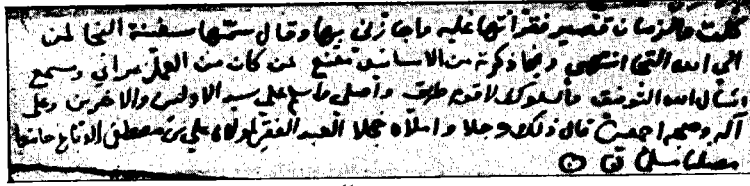 كملت والزمان قصير فقرأتها عليه وأجازني بها وقال سمها سفينة النجا لمن
الى الله التجا انتهى وبما ذكرته من الاسانيد مقنع لمن كان من العمل ومسمع
اسأل الله التوفيق والسلوك لاقوم طريق واصلي واسلم على سيد الاولين والاخرين وعلى
آله وصحبه اجمعين قال ذلك وجلا واملاه خجلا العبد الفقير علي بن مصطفى الدباغ حامدا
مصليا مسلما